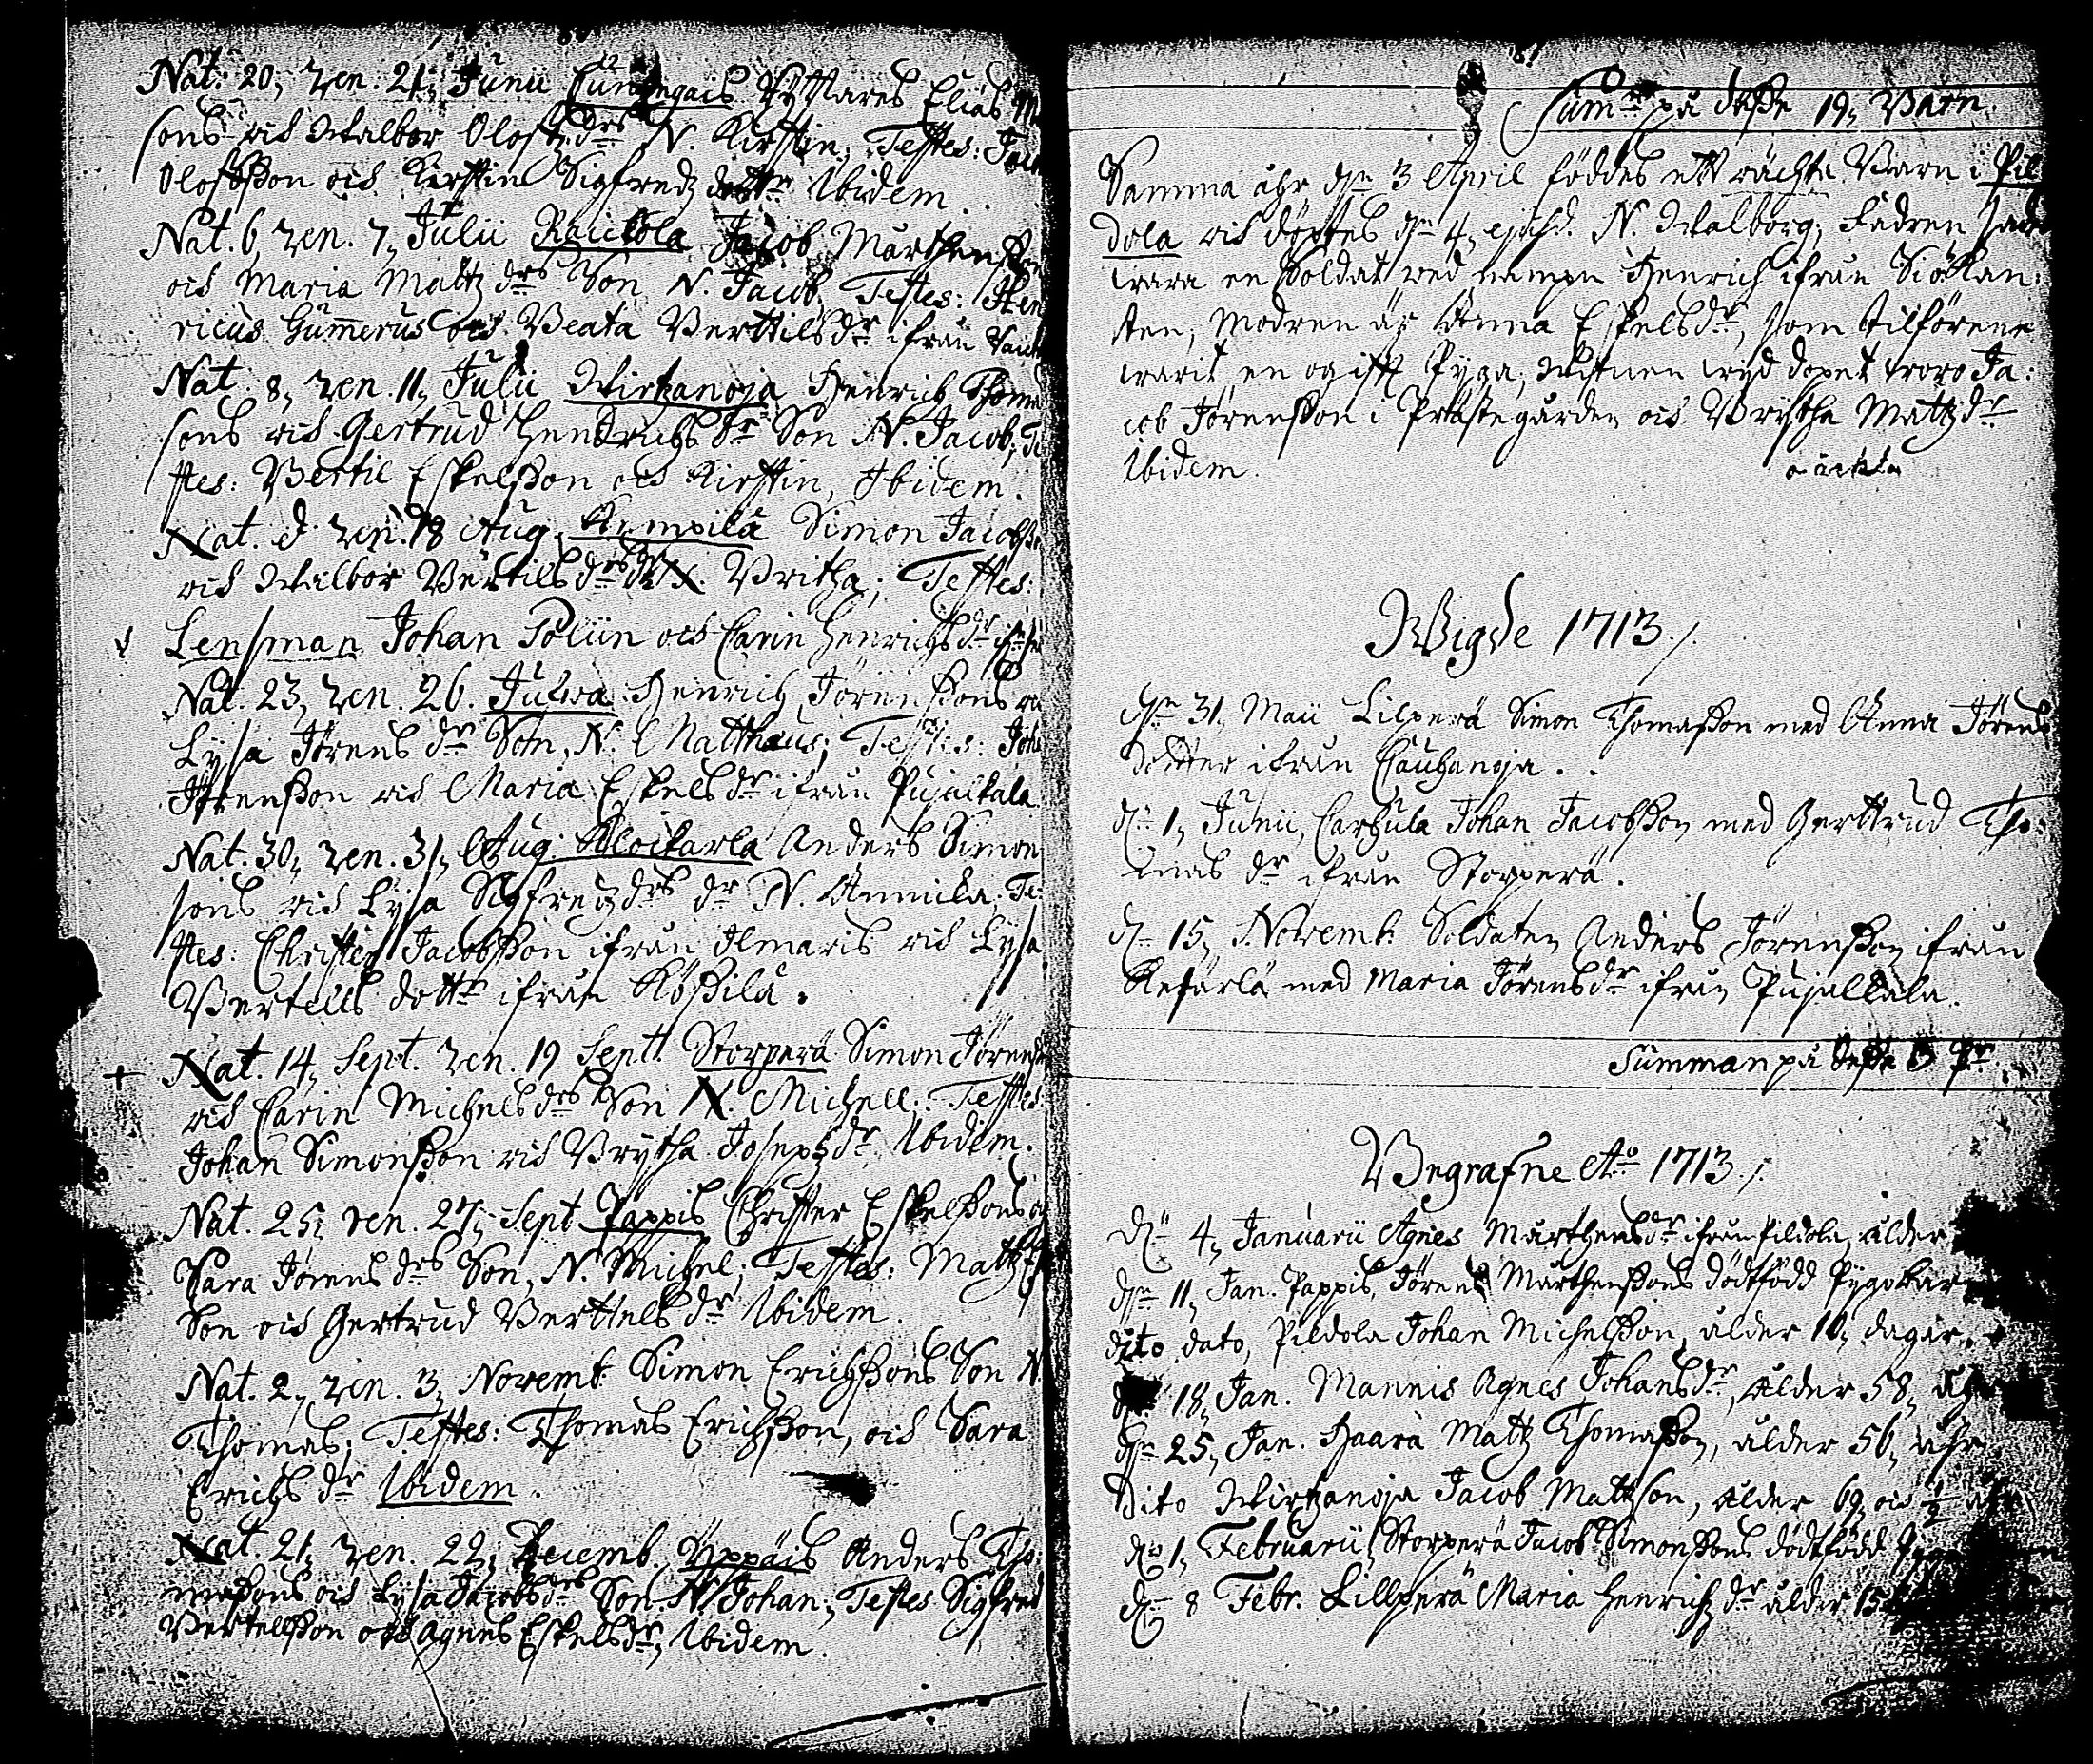 Nat. 20, ren. 21, Junii Cunngais Ryttares Elias
sons och Walbor Olofz drs dr N. Kirstin; Testes: Jac
Olofsson och Kirstin Sigfredz dottr Ibidem.
Nat. 6, ren. 7, Julii Raukola Jacob Mårthensson
och Maria Mattz drs Son N. Jacob; Testes: Hen
ricus Gummerus och Beata Berttils dr ifrån
Nat. 8, ren. 11, Julii Wirtzanoja Henrich Thoma
sons och Gertrud Hendrichs drs Son N. Jacob; Te
stes: Bertil Eskelsson och Kirstin, Ibidem.
Nat. d. ren. 18 Aug. Kempilä Simon Jacobss
och Walbor Bertils drs dr N. Britha; Testes:
Lensman Johan Polün och Carin Henrichs dr
Nat. 23, ren. 26. Jutwa Henrich Jörensons
Lysa Jörens drs Son, N. Matthæus; Testes: Joh
Jörensson och Maria Eskels dr ifrån Pujalkala
Nat. 30, ren. 31, Aug. Klockarla Anders Simon
sons och Lysa Sigfredz drs dr N. Annicka; Te
stes: Christer Jacobsson ifrån Ilmaris och Lysa
Bertells dottr ifrån Kössilä.
+ Nat. 14, Sept. ren. 19 Sept. Storperä Simon Jörens
och Carin Michels drs Son N. Michell; Testes:
Johan Simonsson och Brytha Joseps dr Ibidem.
Nat. 25, ren. 27, Sept. Pappis Christer Eskelssons
Sara Jörens drs Son, N. Michel; Testes: Mattz
Son och Gertrud Berttels dr Ibidem.
Nat. 2, ren. 3, Novemb. Simon Erichssons Son N.
Thomas; Testes: Thomas Erichsson, och Sara
Erichs dr Ibidem.
Nat. 21, ren. 22, Decemb. Yppäis Anders Tho
massons och Lysa Jacobs drs Son N. Johan; Testes Sigfred
Bertellsson och Agnes Eskels dr, Ibidem.
Summa på desse 19, Barn.
Samma åhr dn 3 April föddes ett oächta Barn i Pil
dola och döptes dn 4, ejusd. N. Walborg; Fadren
wara en Soldat wed nampn Henrich ifrån Siöckan
sten, Modren är Anna Eskels dr, som tilförene
warit en ogifft Pyga; Witnen wyd dopet woro Ja:
cob Jörensson i Prästegården och Brytha Mattz dr
Ibidem. oächta
Wigde 1713.
dn 31, Maii Lilperä Simon Thomasson med Anna Jörens
dotter ifrån Cauhanoja.
dn 1, Junii, Carhula Johan Jacobsson med Gerttrud Tho:
mas dr ifrån Storperä.
dn 15, Novemb. Soldaten Anders Jörensson ifrån
Ketarlä med Maria Jörens dr ifrån Pujalkala.
Summan på desse 3 Pr
Begrafne Ao 1713.
dn 4, Januarii Agnes Mårthens dr ifrån Pildola, ålder
dn 11, Jan. Pappis, Jörens Mårthenssons dödfödd Pygobar
dito dato, Pildola Johan Michelsson, ålder 10, dagar
18, Jan. Mannis Agnes Johans dr, ålder 58, åhr
dn 25, Jan. Haara Mattz Thomasson, ålder 56, åhr
Dito Wirtzanoja Jacob Mattsson, ålder 69, och 1/2 åhr
dn 1, Februarii, Storperä Jacob Simonssons dödfödd
dn 8 Febr. Lillperä Maria Henrichz dr ålder 15